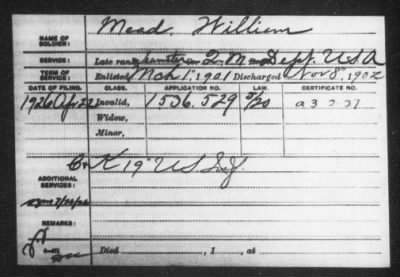 NAME OF SOLDIER: Mead, William
SERVICE: Late rank, Teamster Q. M. Dept. U S A
TERM OF SERVICE: Enlisted Mch 1, 1901 Discharged Nov 8, 1902
DATE OF FILING. CLASS. APPLICATION NO. LAW. CERTIFICATE NO.
1926 Apr 22 Invalid, 1536.529
Widow,
Minor,
K 19" U S Inf.
ADDITIONAL SERVICES:
REMARKS:
Died , 1 , at